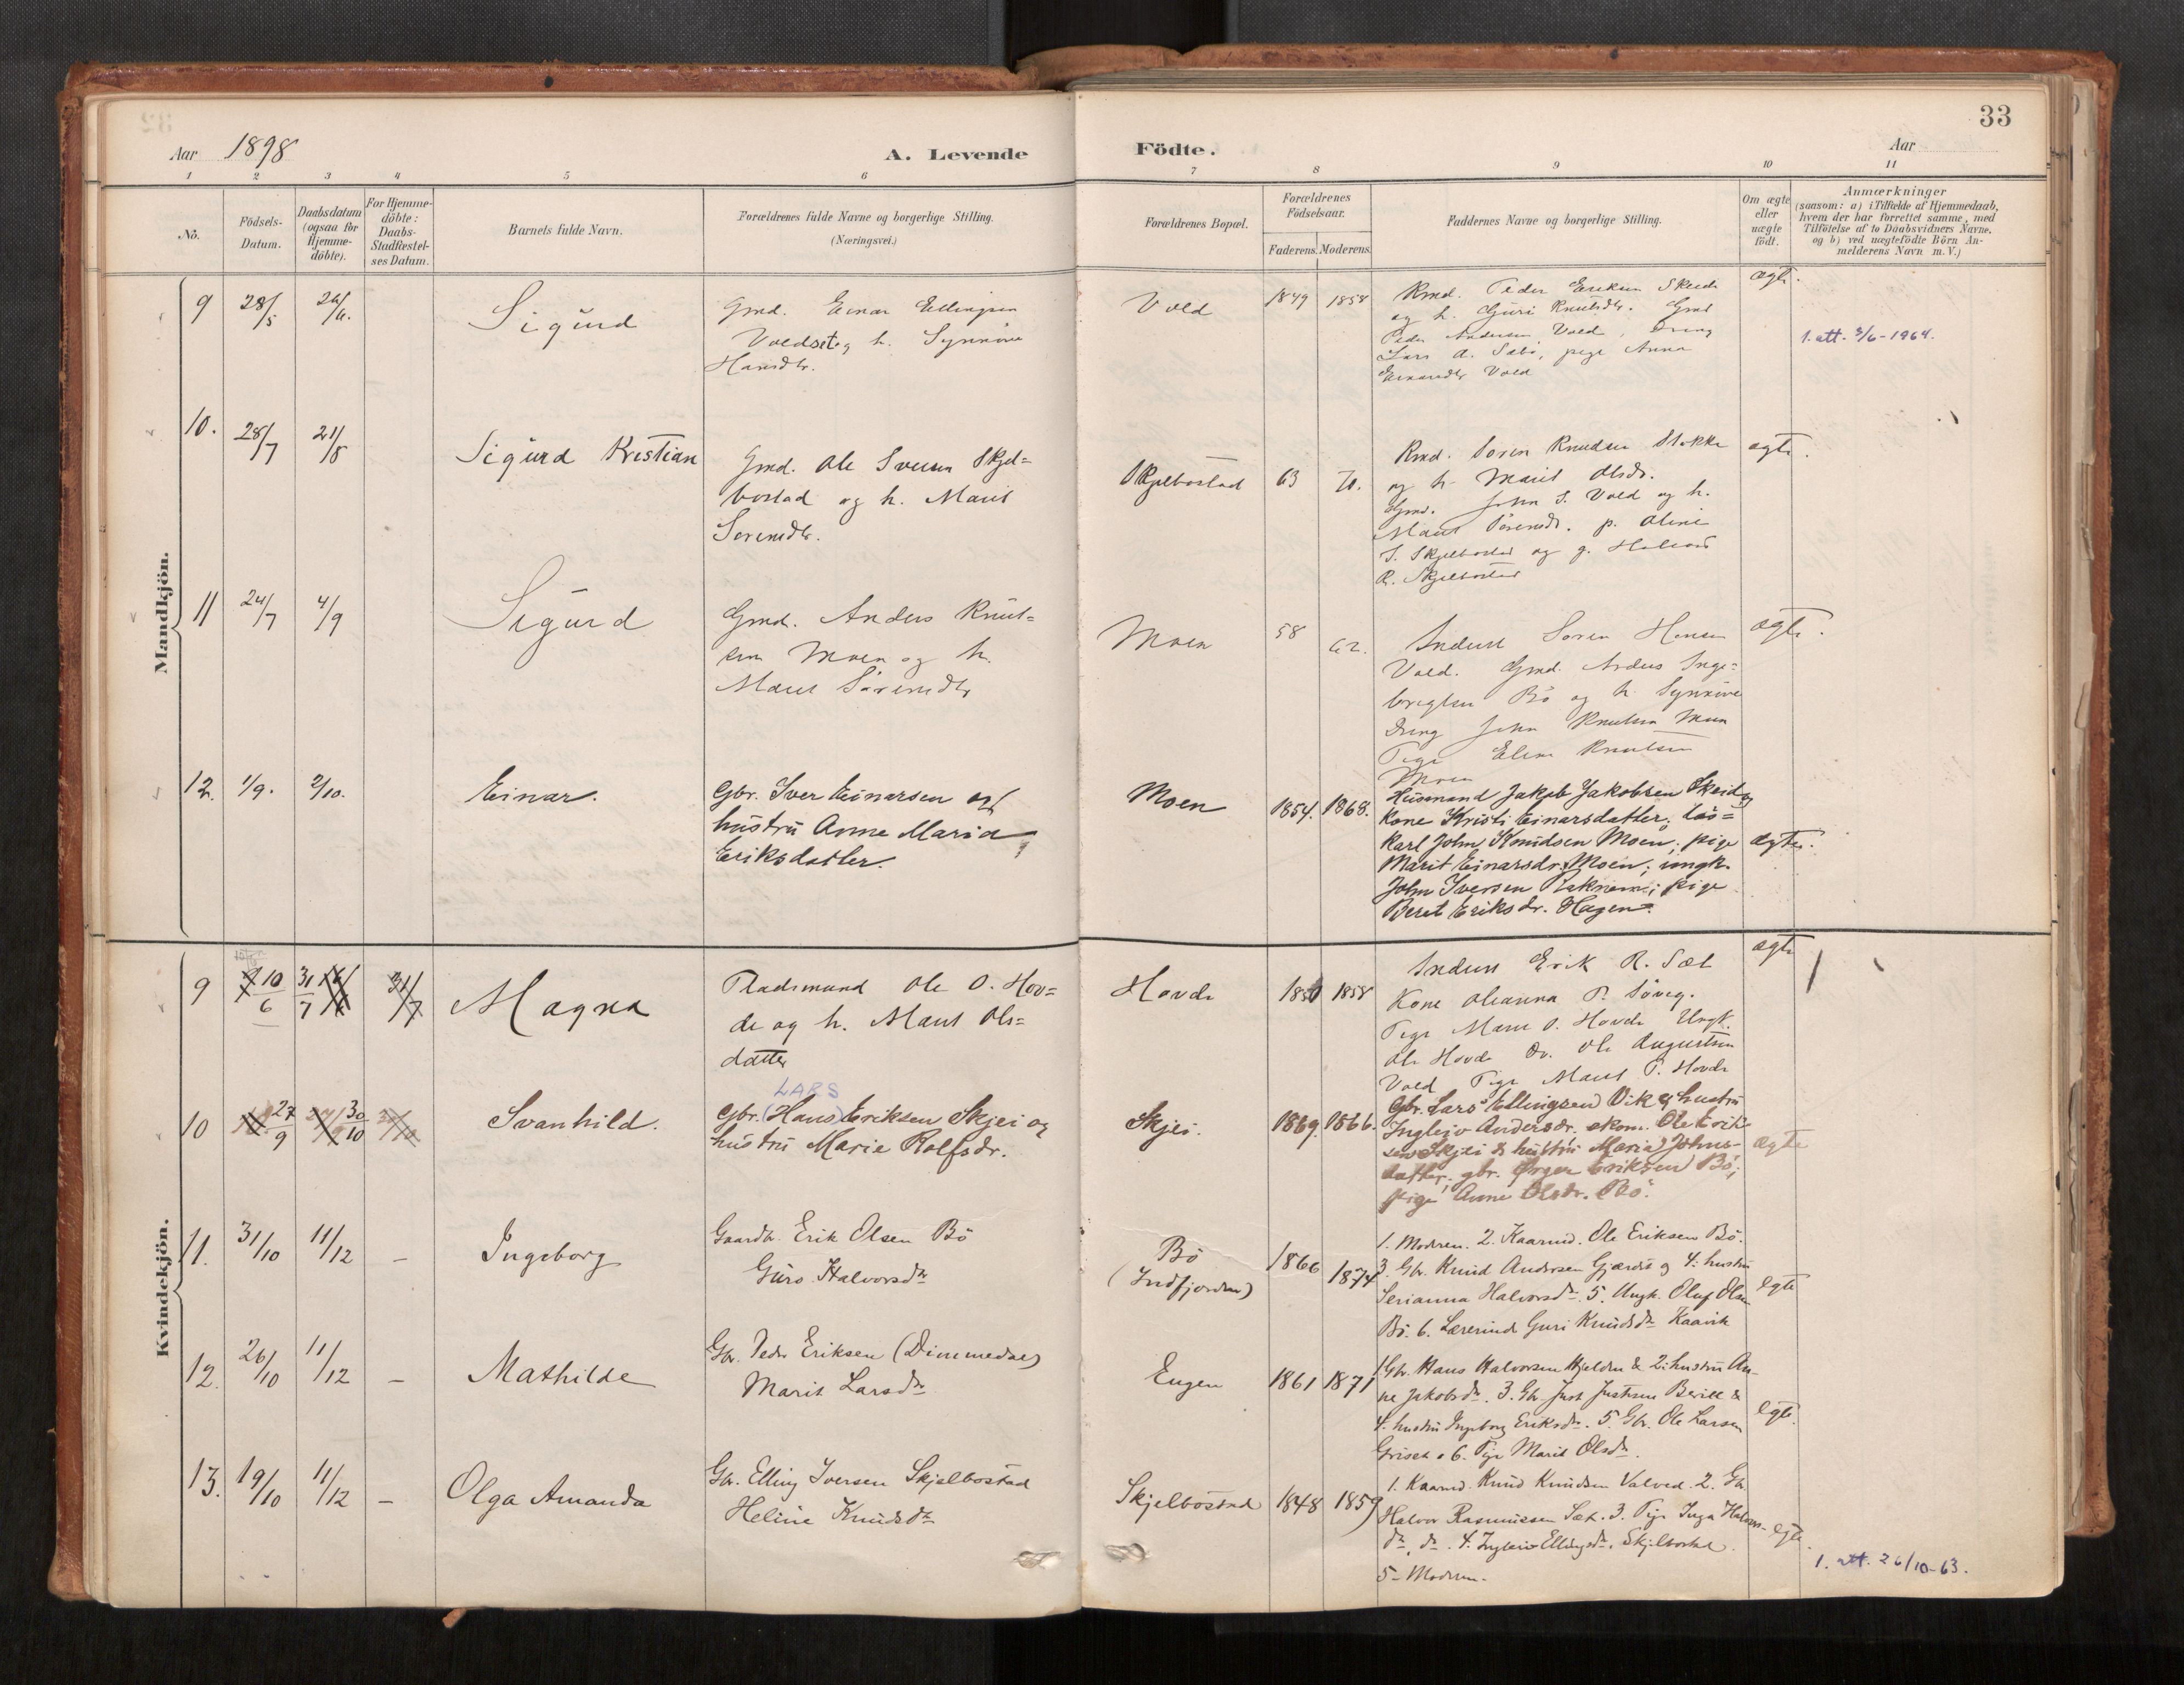 33
Aar 1898
A. Levende
Födte.
Aar
1 2 3 4 5 6 7 8 9 10 11
No.
Födsels-
Datum.
Daabsdatum
(ogsaa for
Hjemme-
döbte).
For Hjemme-
döbte:
Daabs-
Stadfæstel-
ses Datum.
Barnets fulde Navn.
Forældrenes fulde Navne og borgerlige Stilling.
(Næringsvei.)
Forældrenes Bopæl.
Forældrenes
Födselsaar.
Faderens. Moderens.
Faddernes Navne og borgerlige Stilling.
Om ægte
eller
uægte
födt.
Anmærkninger
(saasom: a) i Tilfælde af Hjemmedaab,
hvem der har forrettet samme, med
Tilföielse af to Daabsvidners Navne,
og b) ved uægtefödte Börn An-
melderens Navn m. V.)
Mandkjön.
9 28/5 26/6.
Sigurd
Gmd. Einar Ellingsen
Voldset og h. Synnöve
Hansdtr.
Vold
1849 1858
Kmd. Peder Eriksen
og h. Guri Knutsdtr. Gmd
Peder Andersen Vold, Dreng
Lars A. Sæbö, pige Anna
Einarsdtr Vold
ægte.
1. att. 3/6-1964.
10. 28/7 21/8
Sigurd Kristian
Gmd. Ole Svensen Skjel=
bostad og h. Marit
Sorensdtr.
Skjelbostad
63 70.
Kmd. Soren Knudsen Stokke
og h. Marit Olsdr.
Gmd. John S. Vold og h.
Marit Sörensdr. p. Oline
S. Skjelbostad og g. Halvor
R. Skjelbostad
ægte.
11 24/7 4/9
Sigurd
Gmd. Anders Knut=
sen Moen og h.
Marit Sörensdtr
Moen
58 62.
Inderst Soren Hansen
Vold. Gmd. Anders Inge=
brigtsen Bö og h. Synnöve
Dreng John Knutsen Moen
Pige Elen Knutsen
Moen
ægte.
12. 1/9. 2/10.
Einar.
Gbr. Iver Einarsen og
hustru Anne Maria
Eriksdatter.
Moen
1854. 1868.
Husmand Jakob Jakobsen Skeid og
kone Kristi Einarsdatter; lös=
karl John Knudsen Moen; pige
Marit Einarsdr. Moen; ungk.
John Iversen; pige
Beret Eriksdr. Hagen.
ægte.
Kvindekjön.
9 10/6 31/7 31/7
Magna
Pladsmand Ole O. Hov=
de og h. Marit Ols=
datter
Hovde
1850 1858
Inderst Erik R. Sæt
Kone Oleanna P. Söveg.
Pige Marie O. Hovde Ungk.
Ole Hovde Dr. Ole Augustsen
Vold Pige Marit P. Hovde
ægte
LARS
10 27/9 30/10
Svanhild.
Gbr. (Hans) Eriksen Skjei og
hustru Marie Rolfsdr.
Skjei.
1869. 1866.
Gbr. Lars Ellingsen Vik og hustru
Ingleiv Andersdr. ekom. Ole Erik-
sen Skjei & hustru Maria Johns-
datter, gbr. Örgen Eriksen Bö;
pige Anne Olsdr. Bö.
ægte
11. 31/10 11/12 -
Ingeborg
Gaardb. Erik Olsen Bö
Guro Halvorsdtr
Bö
(Indfjorden)
1866 1874
1. Moderen. 2. Kaarmd. Ole Eriksen Bö.
3. Gbr. Knud Andersen Gjærde og 4. hustru
Serianna Halvorsdtr. 5. Ungk. Oluf Olsen
Bö. 6. Lærerinde Guri Knudsdtr Kaavik
egte
12. 26/10 11/12 -
Mathilde
Gbr. Peder Eriksen (Dimmedal)
Marit Larsdtr
Engen
1861 1871
1 Gbr. Hans Halvorsen Hjelden & 2. hustru An-
ne Jakobsdtr. 3. Gbr. Just Justsen Berild &
4. hustru Ingeborg Eriksdtr. 5. Gbr. Ole Larsen
Griset & 6. Pige Marit Olsdtr.
egte.
13. 19/10 11/12 -
Olga Amanda
Gbr. Elling Iversen Skjelbostad
Heline Knudsdtr
Skjelbostad
1848 1859
1. Kaarmd. Knud Knudsen Valved. 2. Gbr.
Halvor Rasmussen Sæt. 3. Pige Inga Halvors-
dtr, do. 4. Ingleiv Ellingsdtr. Skjelbostad.
5- Moderen.
egte.
1. att. 26/10-63.